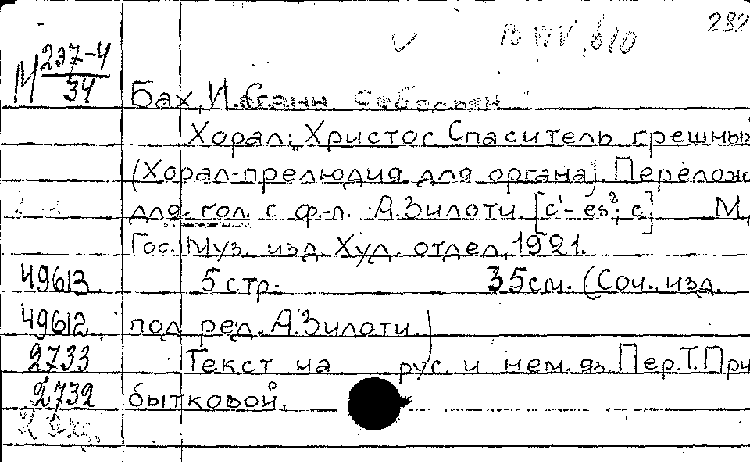 232
М 237-4
34
Бах, И.
Хорал: Христос Спаситель грешных
(Хорал-прелюдия для органа). Перелож
для гол. с ф-п. А.Зилоти. [c'- es²; c] М.,
Гос. Муз. изд. Худ. отдел, 1921.
49613 5 стр. 35см. (Соч. изд.
49612 под ред. А.Зилоти.)
2733 Текст на рус. и нем. яз. Пер. Т. При
2732 бытковой.